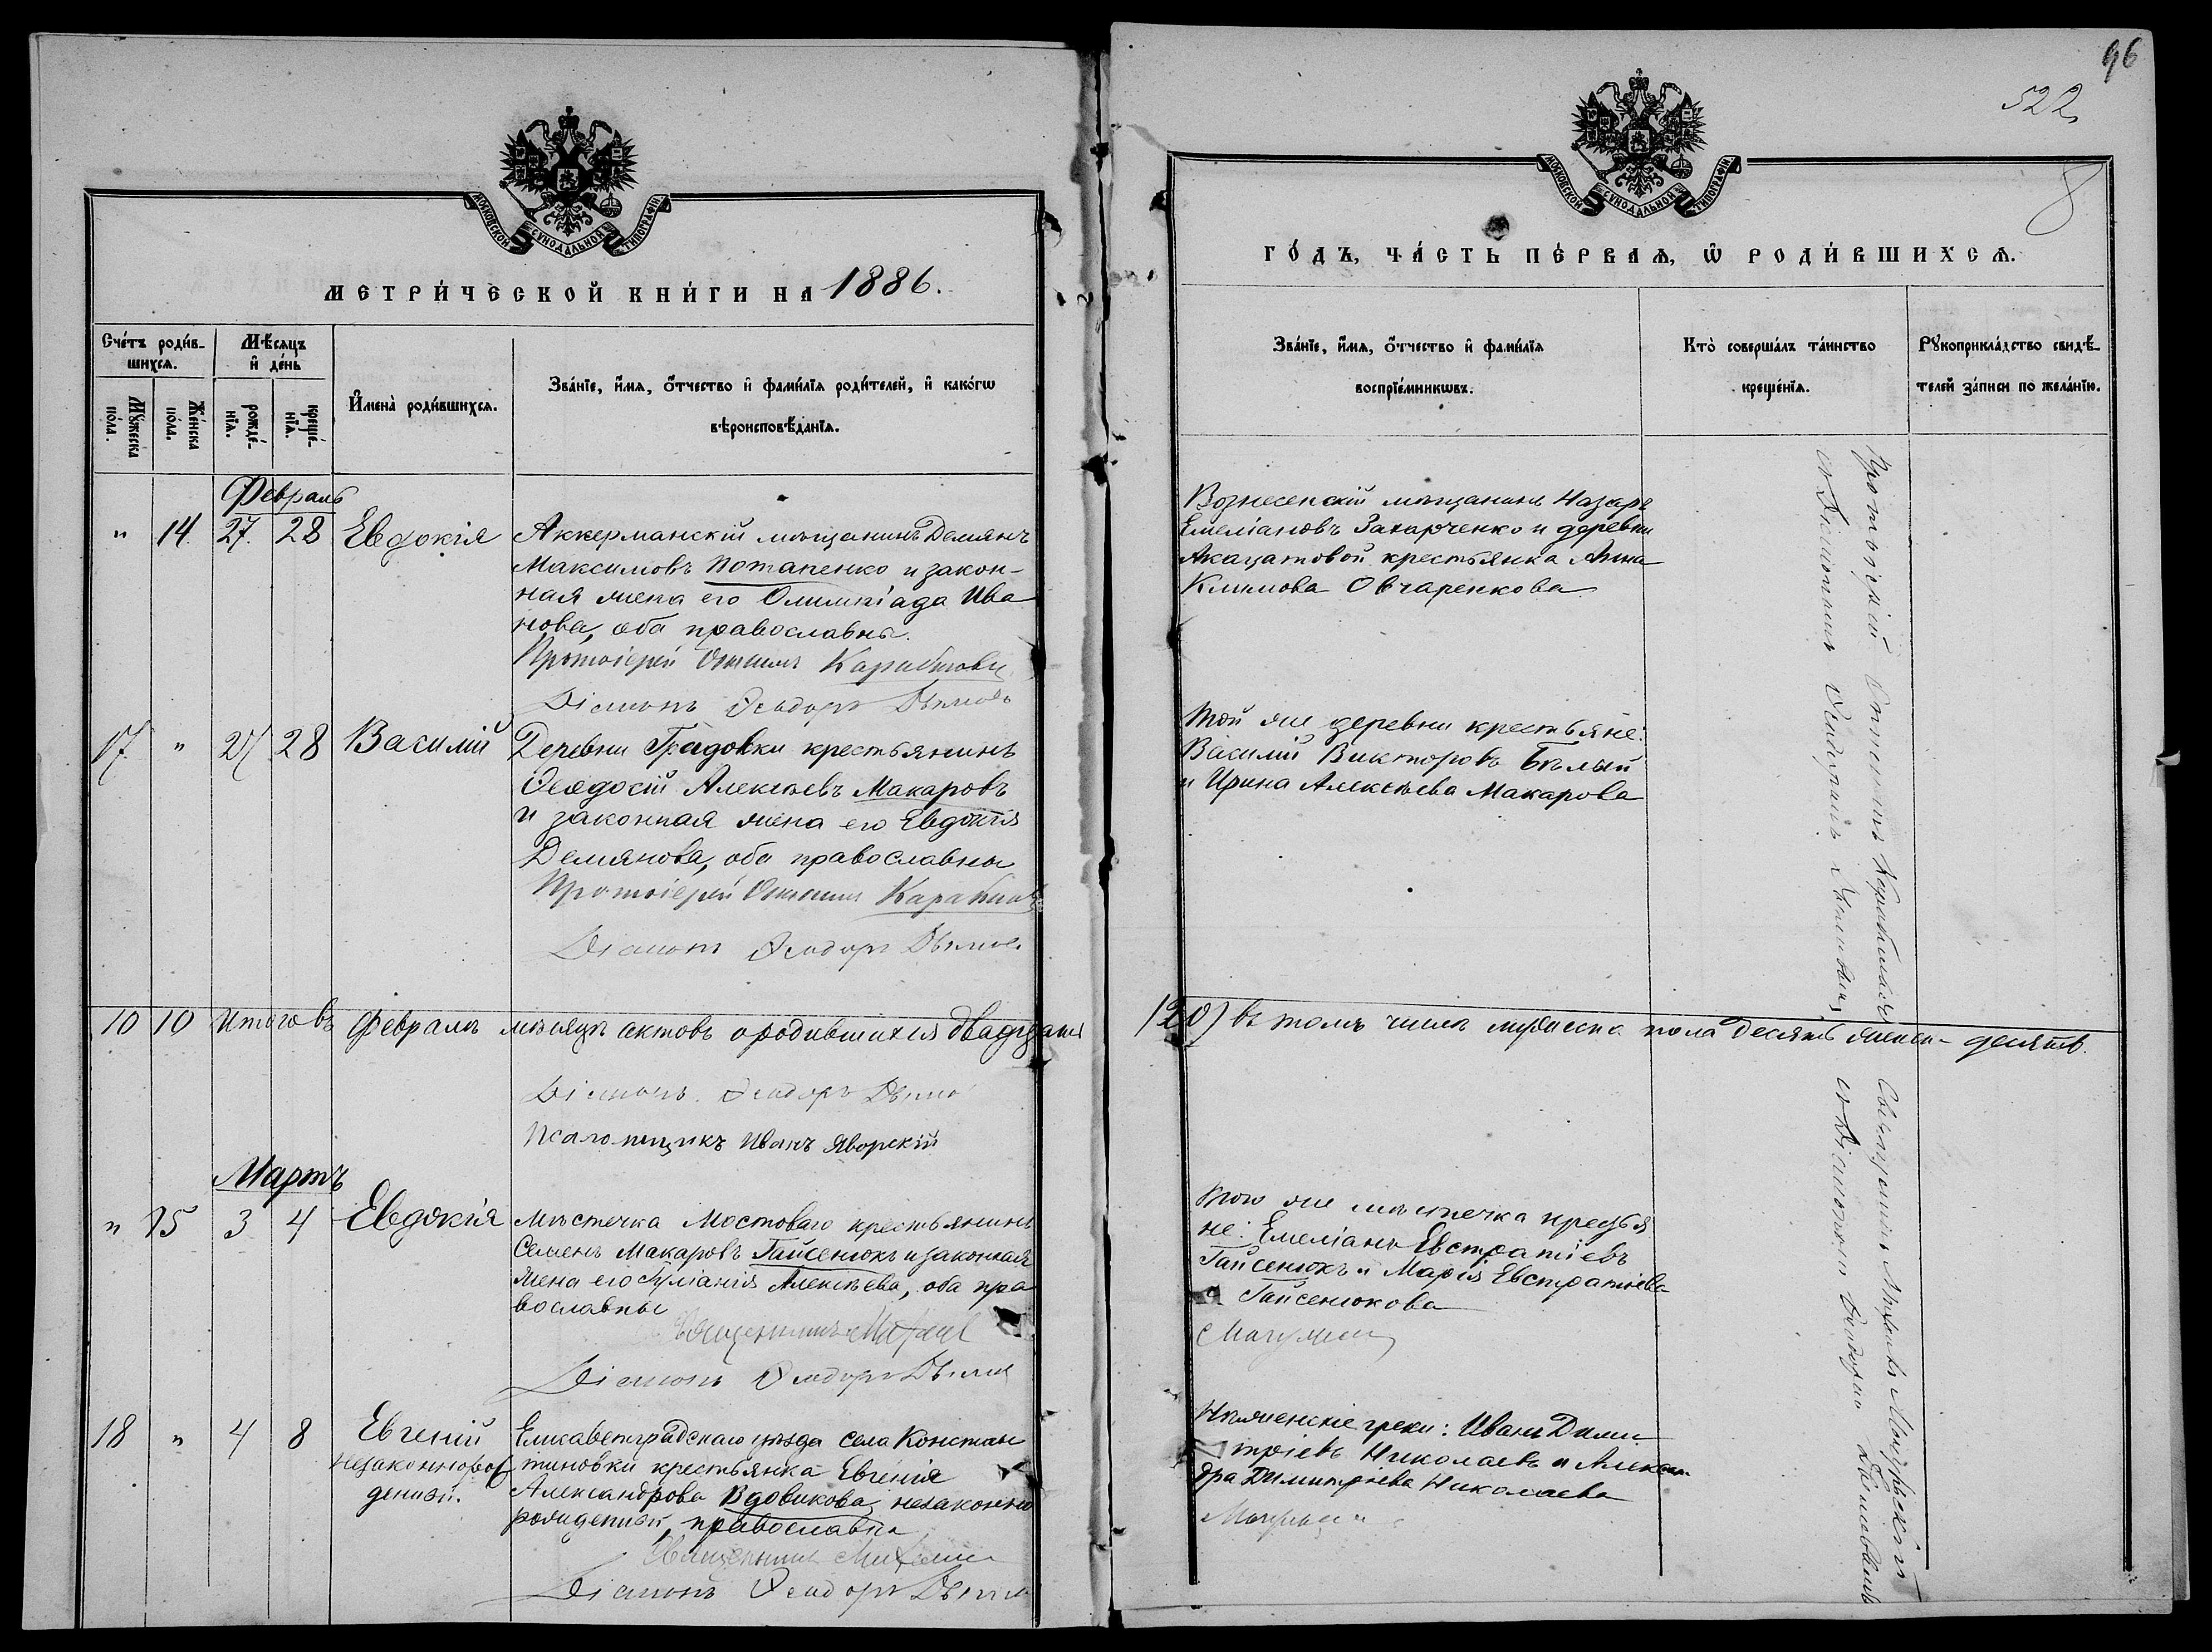 МОСКОВСКОЙ СѴНОДАЛЬНОЙ ТИПОГРАФІИ
МЕТРИ́ЧЕСКОЙ КНИ́ГИ НА 1886.
Сче́тъ роди́в-
шихсѧ.
Мѣ́сѧцъ
и҆ де́нь
Мꙋ́жеска
по́ла.
Же́нска
по́ла.
рожде́-
нїѧ.
креще́-
нїѧ.
И҆мена̀ роди́вшихсѧ.
Зва́нїе, и҆́мѧ, ѻ҆́тчество и҆ фами́лїѧ роди́телей, и҆ како́гѡ
вѣроисповѣ́данїѧ.
Февраль
" 14 27. 28 Евдокія
Аккерманскій мѣщанинъ Демянъ
Максимовъ Потапенко и закон-
ная жена его Олимпіада Ива
нова, оба православны.
Протоіерей Карабиновъ
Діаконъ Ѳеодоръ
17 " 27 28 Василій
Деревни Градовки крестьянинъ
Ѳеодосій Алексѣевъ Макаровъ
и законная жена его Евдокія
Демянова, оба православны
Протоіерей Карабиновъ
Діаконъ Ѳеодоръ
10 10 Итого въ Февралѣ мѣсяцѣ актовъ о родившихся двадцать
Діаконъ Ѳеодоръ
Псаломщикъ Иванъ Яворскій
Мартъ
" 15 3 4 Евдокія
Мѣстечка Мостоваго крестьянинъ
Семенъ Макаровъ Гайсенюкъ и законная
жена его Іуліанія Алексѣева, оба пра
вославны
Священникъ Михаилъ
Діаконъ Ѳеодоръ
18 " 4 8 Евгеній
незаконнорож
денный.
Елисаветградскаго уѣзда села Констан
тиновки крестьянка Евгенія
Александрова Вдовикова, незаконно
рожденный, православна
Священникъ Михаилъ
Діаконъ Ѳеодоръ
96
522
8
МОСКОВСКОЙ СѴНОДАЛЬНОЙ ТИПОГРАФІИ
ГО́ДЪ, ЧА́СТЬ ПЕ́РВАѦ, Ѽ РОДИ́ВШИХСѦ.
Зва́нїе, и҆́мѧ, ѻ҆́тчество и҆ фами́лїѧ
воспрїе́мникѡвъ.
Кто̀ соверша́лъ та́инство
креще́нїѧ.
Рꙋкоприкла́дство свидѣ́-
телей за́писи по жела́нїю.
Вознесенскій мѣщанинъ Назаръ
Емеліановъ Захарченко и деревни
Акацатовой крестьянка Анна
Климова Овчаренкова
Той же деревни крестьяне:
Василій Викторовъ Бѣлый
и Ирина Алексѣева Макарова
(20) въ томъ числѣ мужеска пола десять женск- десять.
Того же мѣстечка крестья
не: Емеліанъ Евстратіевъ
Гайсенюкъ и Марія Евстратіева
Гайсенюкова
Нѣженскіе греки: Иванъ Дими
тріевъ Николаевъ и Алексан
дра Димитріева Николаева
Протоіерей
съ Діакономъ Ѳеодоромъ
Священникъ Михаилъ
съ Діакономъ Ѳеодоромъ